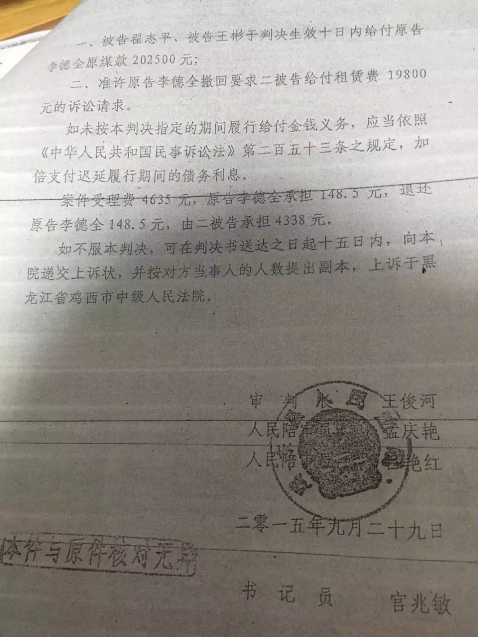 一、被告翟志平、被告王彬于判决生效十日内给付原告
李德全原煤款 202500 元;
二、准许原告李德全撤回要求二被告给付租赁费 19800
元的诉讼请求。
如未按本判决指定的期间履行给付金钱义务，应当依照
《中华人民共和国民事诉讼法》第二百五十三条之规定，加
倍支付迟延履行期间的债务利息。
案件受理费 4635 元，原告李德全承担 148.5 元，退还
原告李德全 148.5 元，由二被告承担 4338 元。
如不服本判决，可在判决书送达之日起十五日内，向本
院递交上诉状，并按对方当事人的人数提出副本，上诉于黑
龙江省鸡西市中级人民法院。
审 判 王俊河
人民陪 孟庆艳
人民陪 艳红
二零一五年九月二十九日
本件与原件核对无异
书 记 员 官兆敏